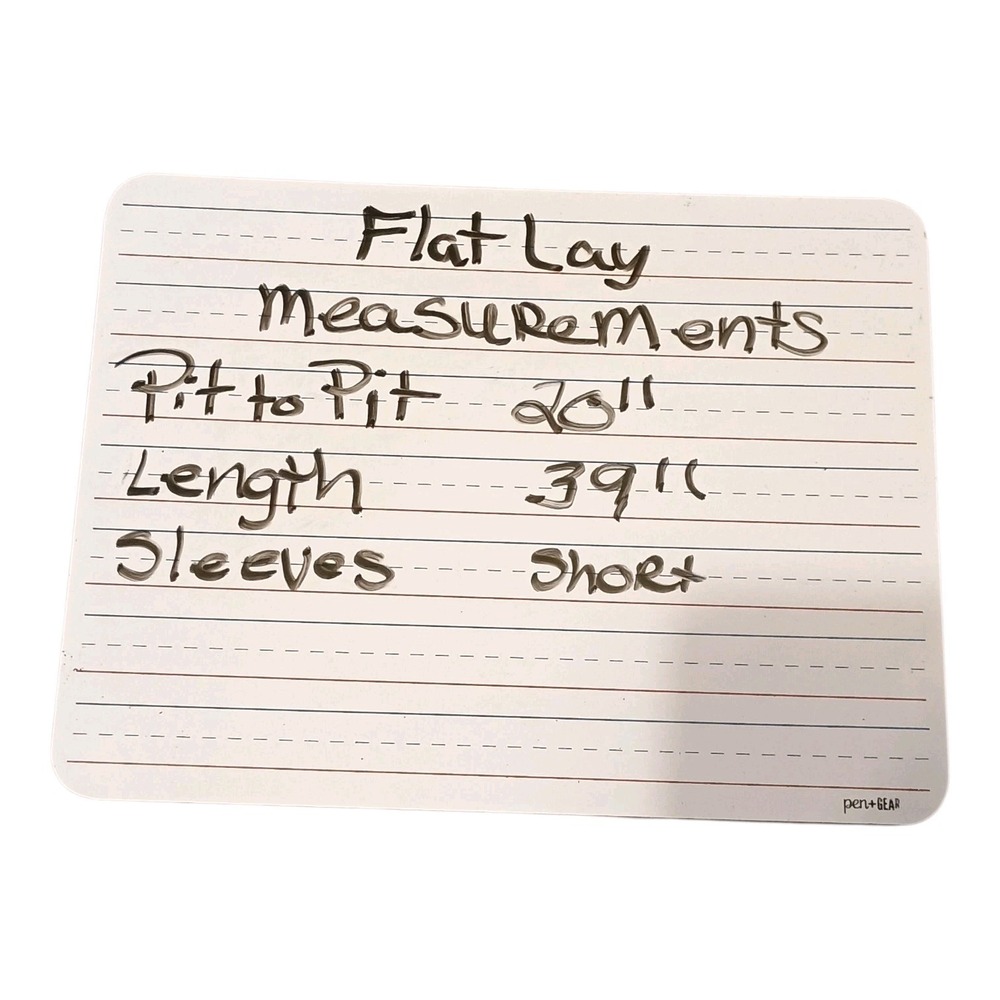 Flat Lay
Measurements
Pit to Pit 20"
Length 39"
Sleeves Short
pen+GEAR